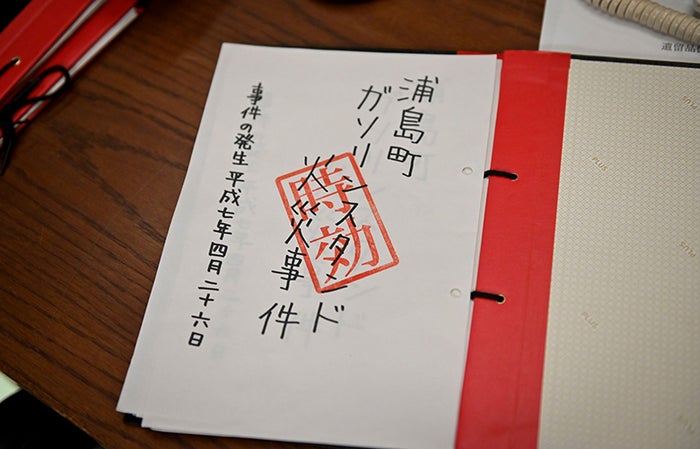 浦島町
ガソリンスタンド
火災事件
事件の発生 平成七年四月二十六日
時効
遺留品
PLUS
PLUS
PLUS